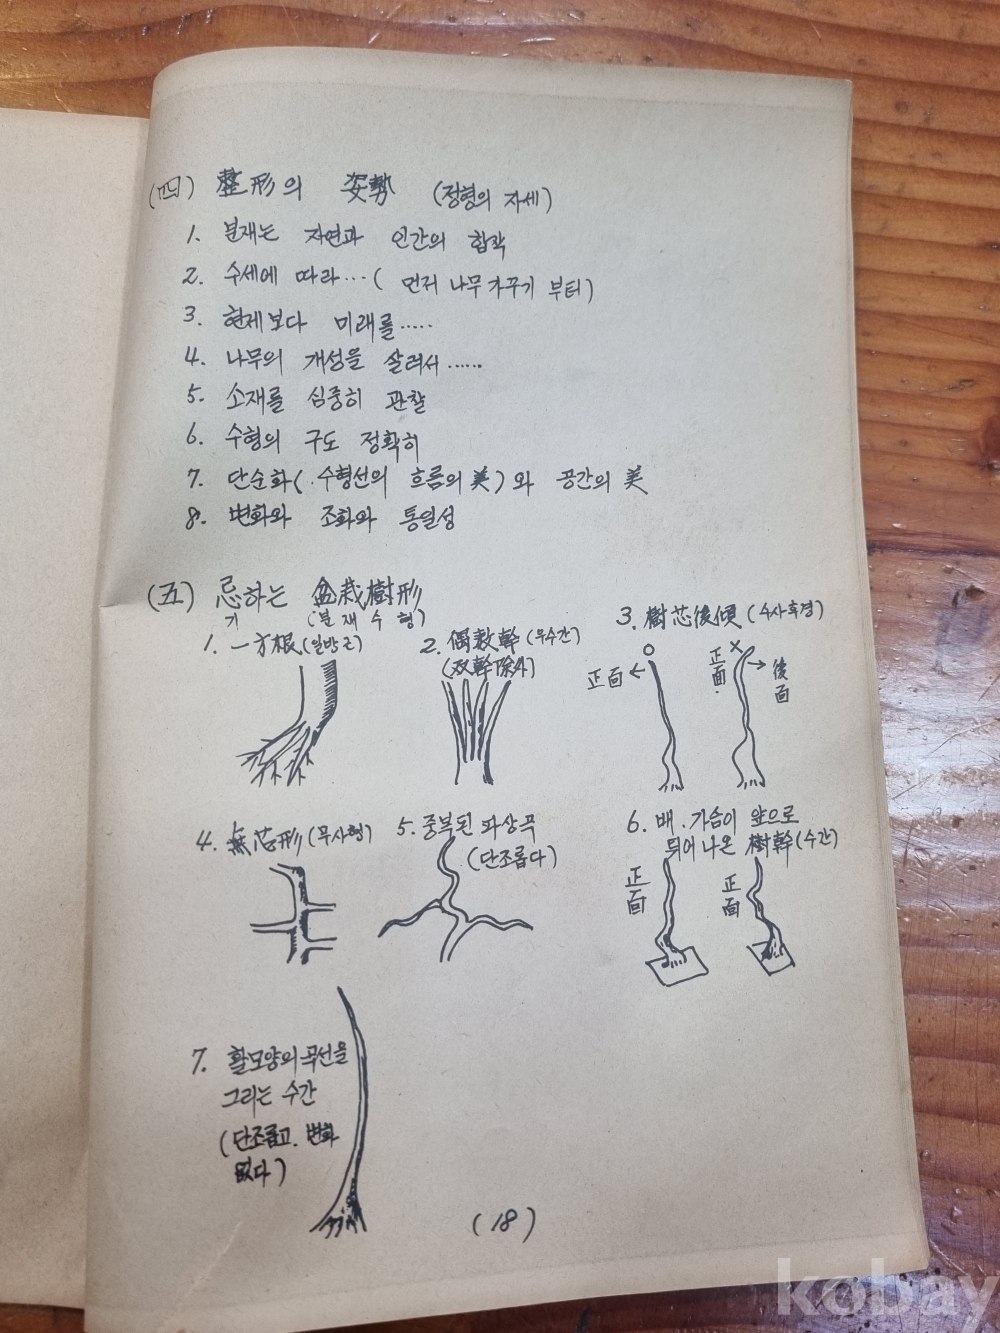 (四) 整形의 姿勢 (정형의 자세)
1. 분재는 자연과 인간의 합작
2. 수세에 따라…( 먼저 나무 가꾸기 부터)
3. 현제보다 미래를……
4. 나무의 개성을 살려서……
5. 소재를 심중히 관찰
6. 수형의 구도 정확히
7. 단순화(수형선의 흐름의 美)와 공간의 美
8. 변화와 조화와 통일성
(五) 忌하는 盆栽樹形
기 (분재수형)
1. 一方根(일방근)
2. 偶数幹(우수간)
(双幹除外)
3. 樹芯後傾(수사후경)
正面
正面
後面
4. 無芯形(무사형)
5. 중부된 파상곡
(단조롭다)
6. 배.가슴이 앞으로
튀어나온 樹幹(수간)
正面
正面
7. 활모양의 곡선을
그리는 수간
(단조롭고. 변화
없다)
(18)
kobay